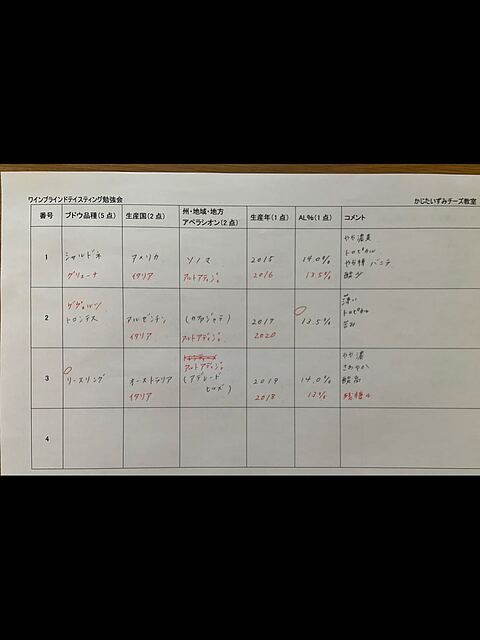 ワインブラインドテイスティング勉強会
かじたいずみチーズ教室
番号 ブドウ品種(5点) 生産国(2点) 州・地域・地方 アペラシオン(2点) 生産年(1点) AL%(1点) コメント
1 シャルドネ アメリカ ソノマ 2015 14.0%
グリューナ イタリア アルトアディジェ 2016 13.5%
やや濃黄
トロピカル
やや樽 バニラ
酸少
2 ゲヴェルツ
トロンテス アルゼンチン (カファジャテ) 2017 13.5%
イタリア アルトアディジェ 2020
薄い
トロピカル
苦み
3 リースリング オーストラリア (アデレード ヒルズ) 2019 14.0%
アルトアディジェ
イタリア 2018 12%
やや濃
さわやか
酸高
残糖
4